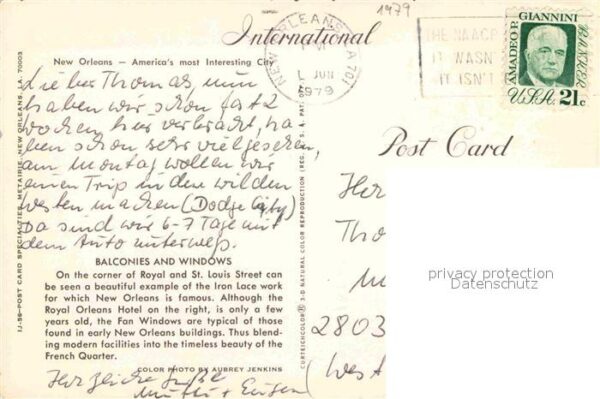 1979
International
NEW ORLEANS
JUN
1979
THE NAACP
IT WASN
IT ISN'T
AMADEO P. GIANNINI BANKER
U.S.A. 21c
New Orleans — America's most Interesting City
Lieber Thomas, nun
haben wir schon fast 2
Wochen hier verbracht, ha-
ben schon sehr viel gesehen,
am Montag wollen wir
einen Trip in den wilden
Westen machen (Dodge City)
Da sind wir 6-7 Tage mit
dem Auto unterwegs.
Post Card
BALCONIES AND WINDOWS
On the corner of Royal and St. Louis Street can
be seen a beautiful example of the Iron Lace work
for which New Orleans is famous. Although the
Royal Orleans Hotel on the right, is only a few
years old, the Fan Windows are typical of those
found in early New Orleans buildings. Thus blend-
ing modern facilities into the timeless beauty of the
French Quarter.
COLOR PHOTO BY AUBREY JENKINS
Herzliche Grüße
Mutti + Eugen
IJ-56—POST CARD SPECIALTIES, METAIRIE, NEW ORLEANS, LA. 70003
CURTEICHCOLOR® 3-D NATURAL COLOR REPRODUCTION (REG. U. S. A. PAT.
Her
Tho
M
2803
(West
privacy protection
Datenschutz